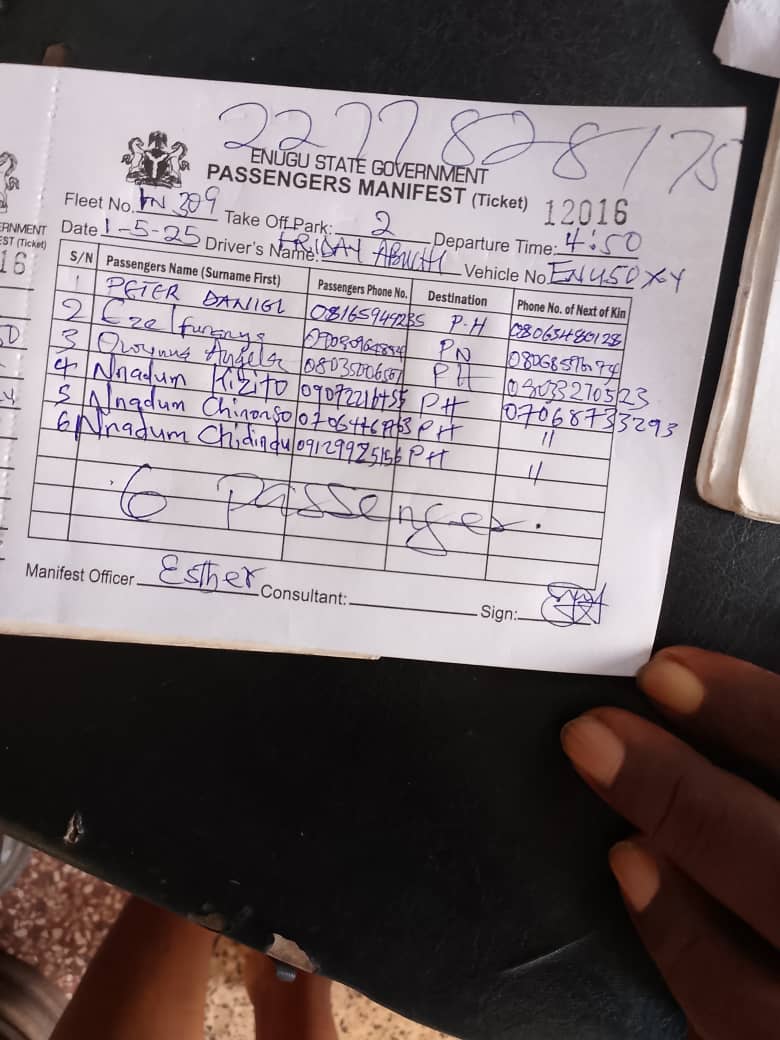 2277828175
ENUGU STATE GOVERNMENT
PASSENGERS MANIFEST (Ticket) 12016
Fleet No. EN 309 Take Off Park: 2 Departure Time: 4:50
Date 1-5-25 Driver's Name: FRIDAY Vehicle No. EN450XY
S/N Passengers Name (Surname First) Passengers Phone No. Destination Phone No. of Next of Kin
1 PETER DANIEL 08165949235 P.H
2 Eze PN
3 Angela PH 08033270523
4 Nnadum Kizito PH 07068733293
5 Nnadum Chinonso PH 11
6 Nnadum Chidindu PH 11
6 Passenger.
Manifest Officer Esther Consultant: Sign:
ERNMENT
EST (Ticket)
16